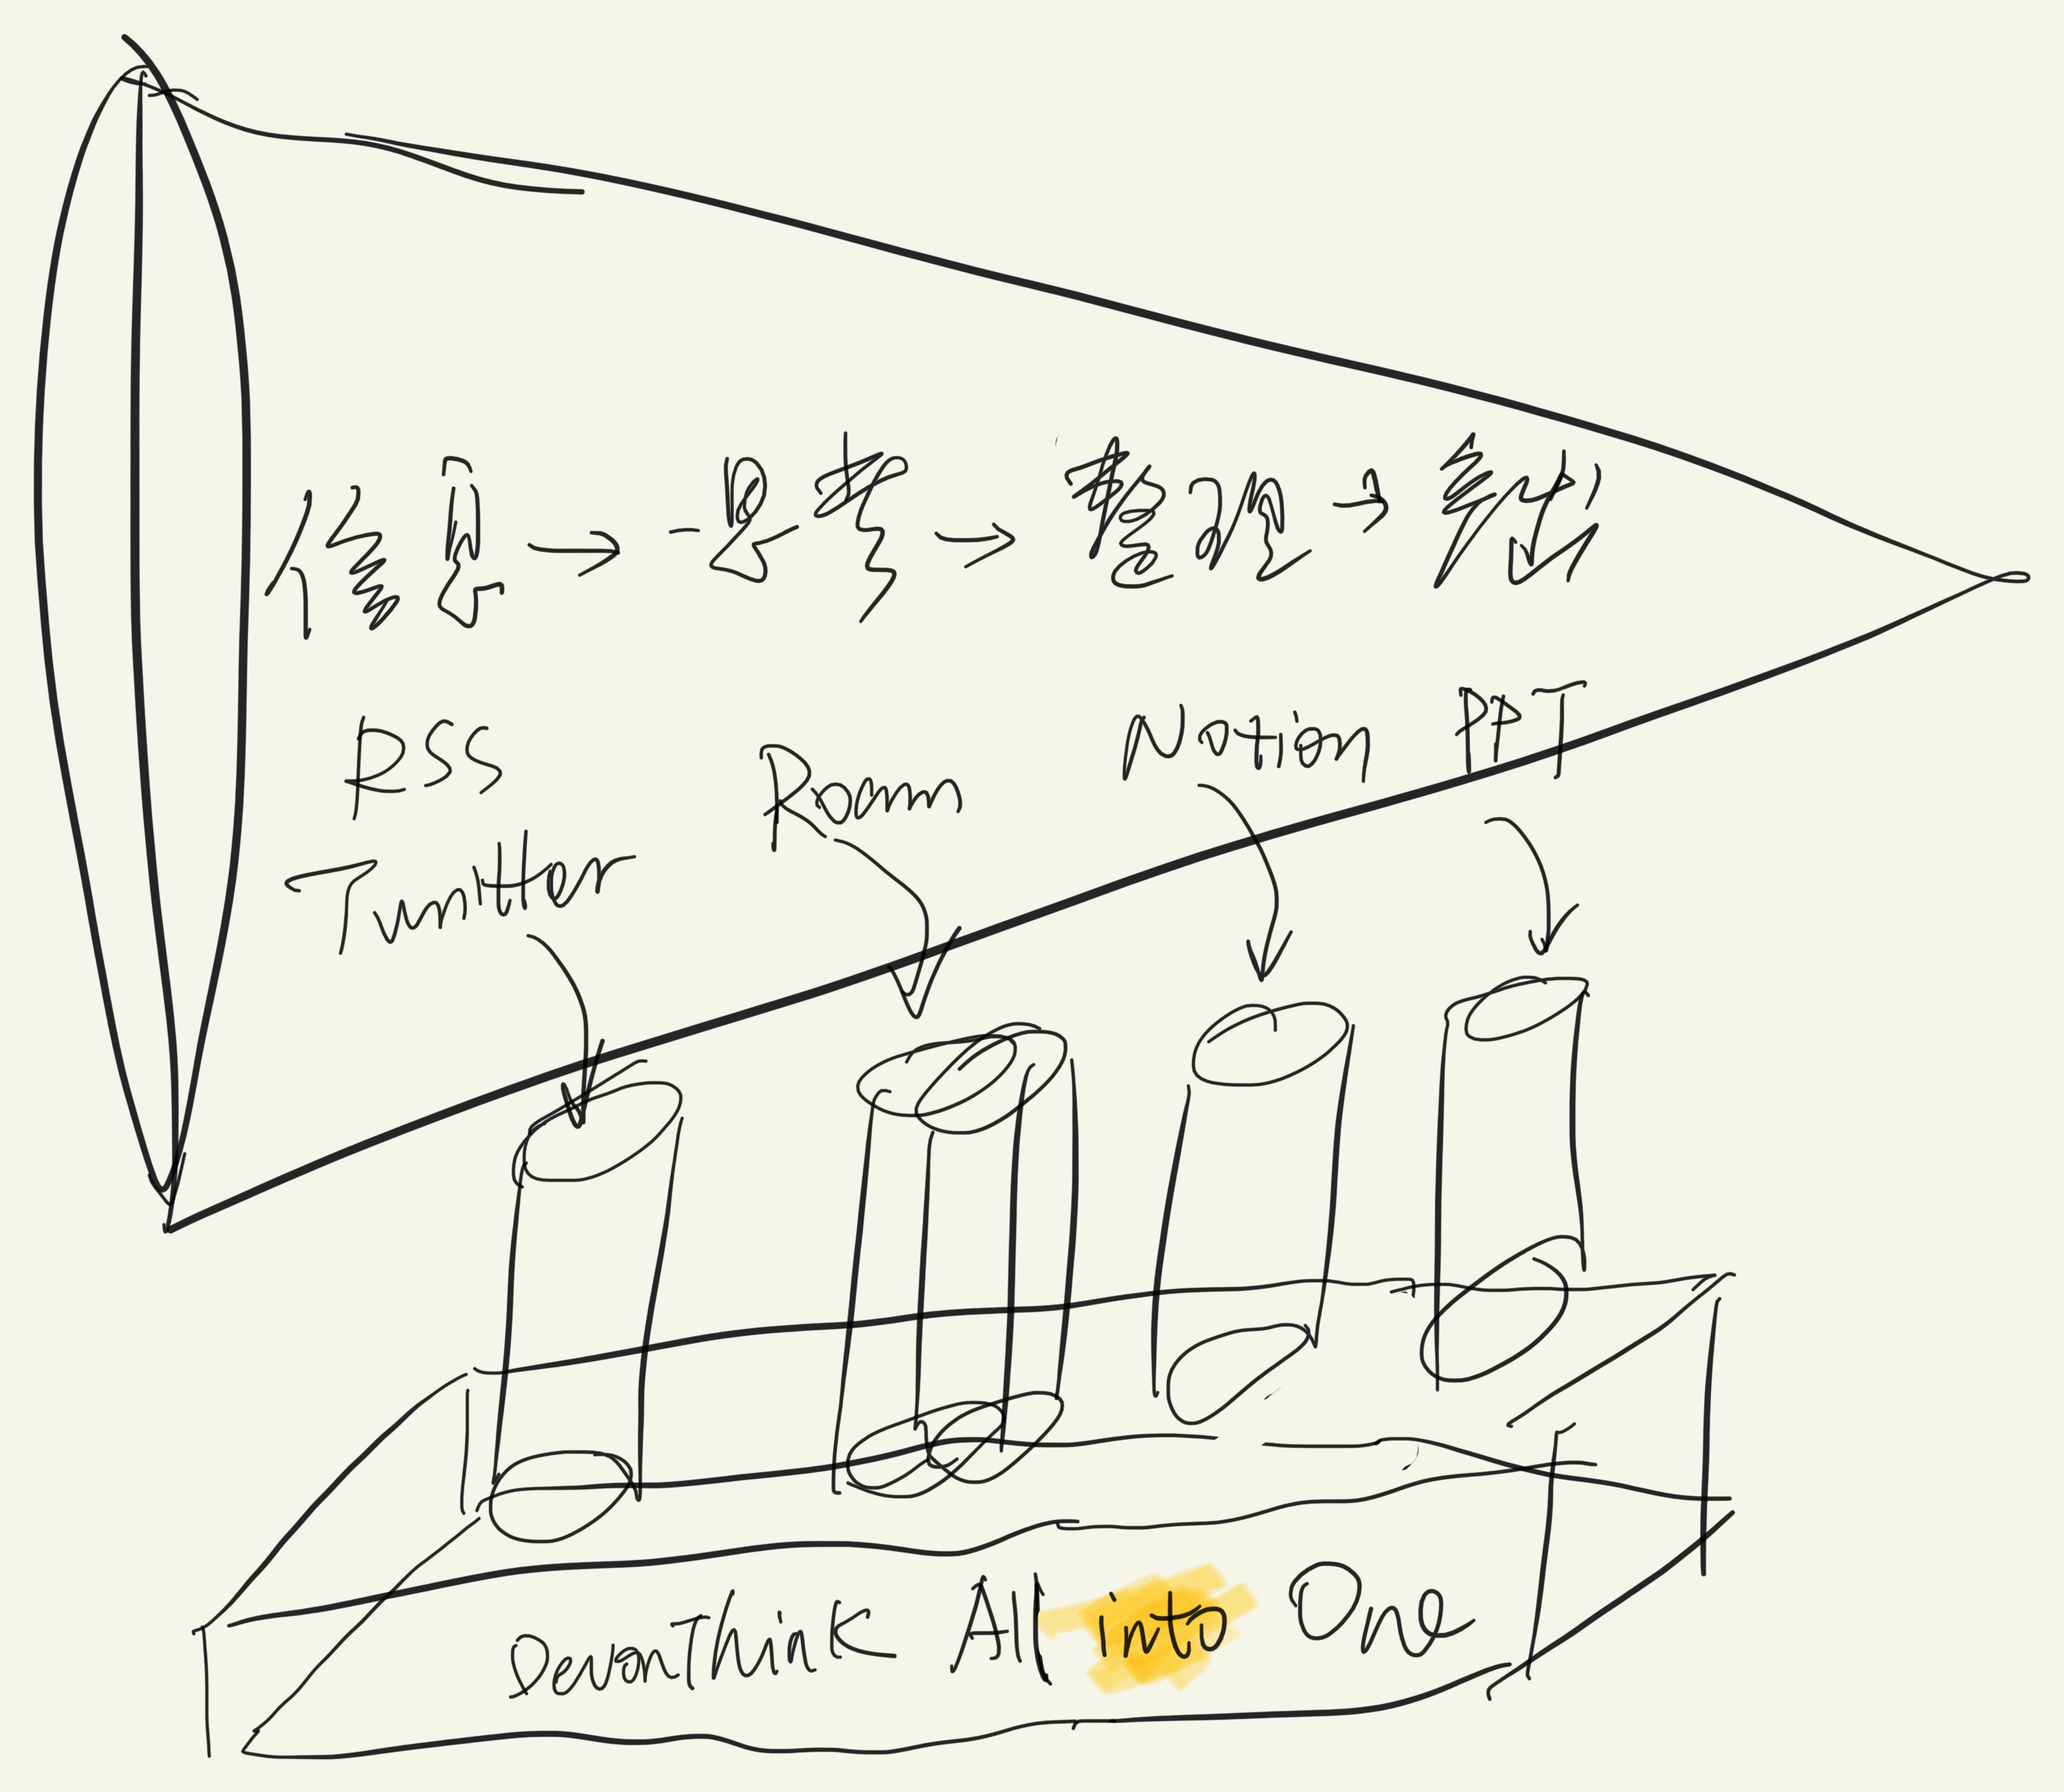 信息 → 思考 → 整理 →
RSS
Twitter
Roam
Notion
PPT
DevonThink All into One